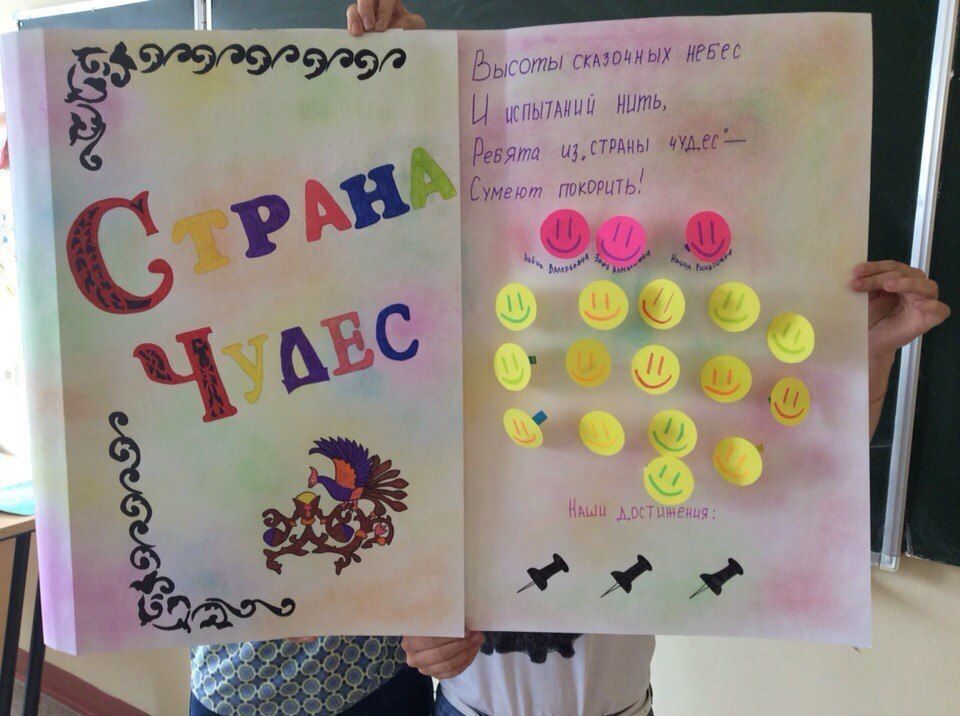 Страна
Чудес
Высоты сказочных небес
И испытаний нить,
Ребята из „страны чудес"—
Сумеют покорить!
Валерьевна
Наши достижения: